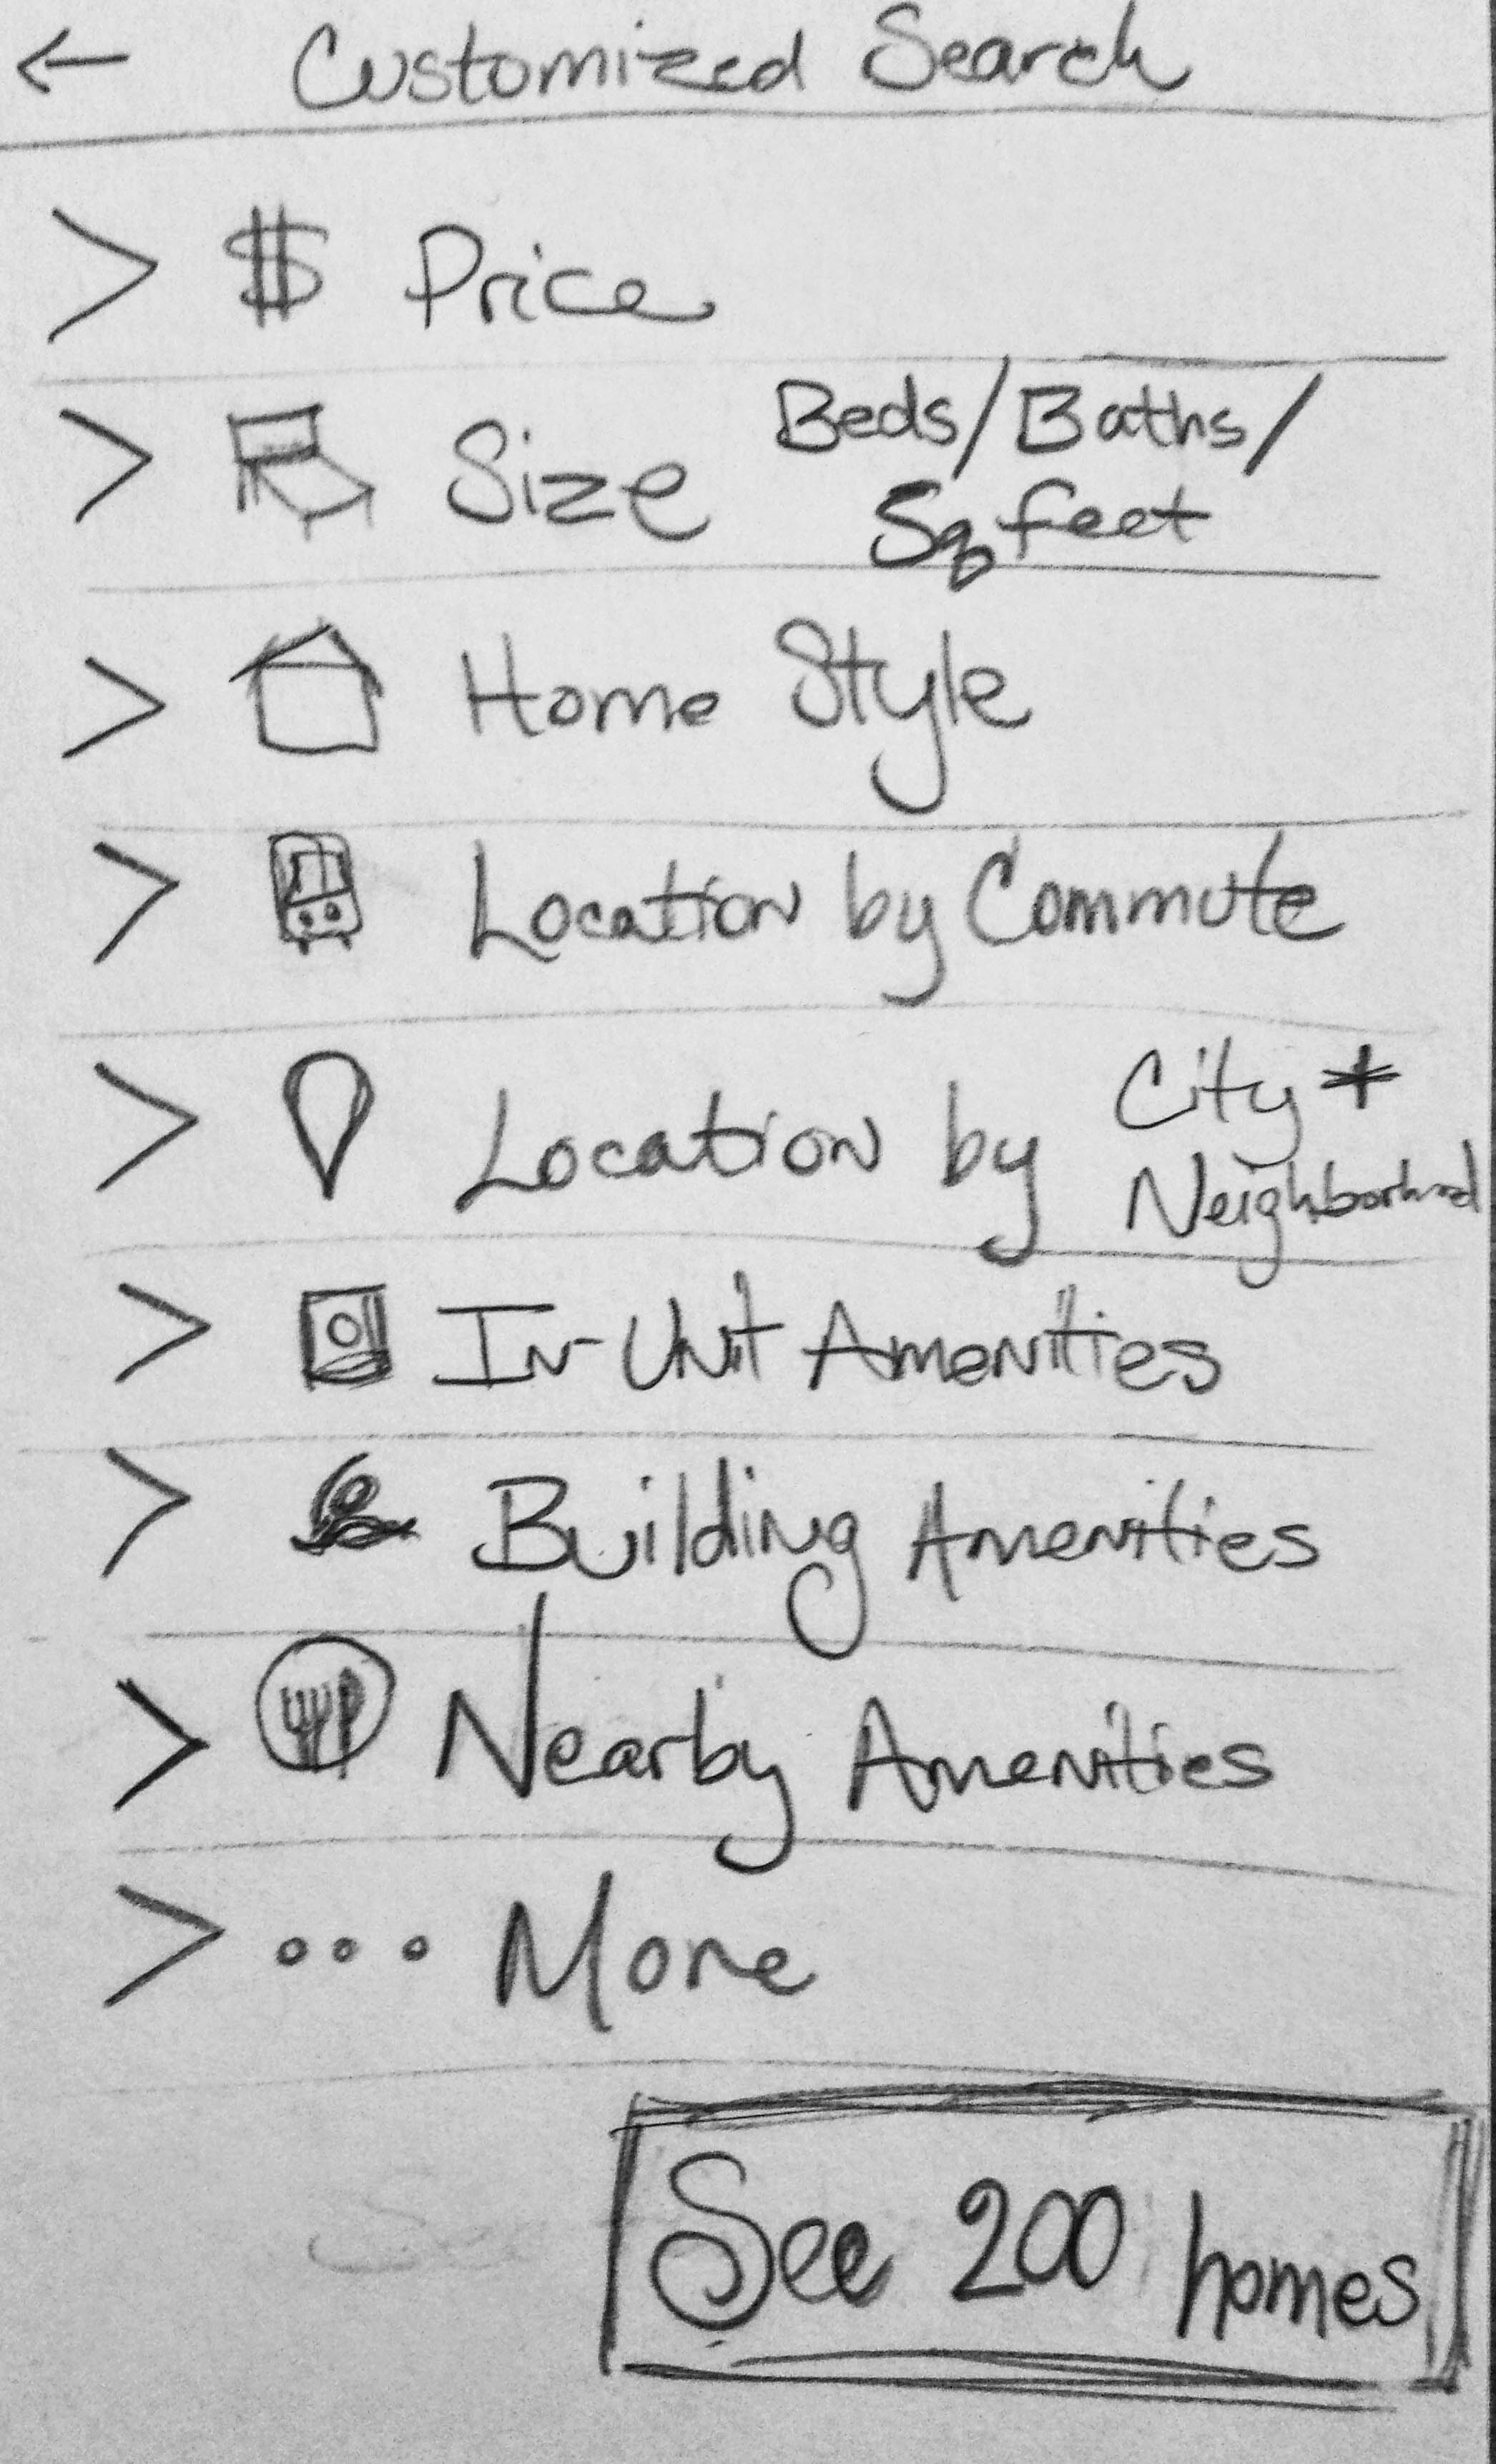 ← Customized Search
> $ Price
> Size Beds/Baths/
Sq feet
> Home Style
> Location by Commute
> Location by City *
Neighborhood
> In-Unit Amenities
> Building Amenities
> Nearby Amenities
> ... More
See 200 homes
See